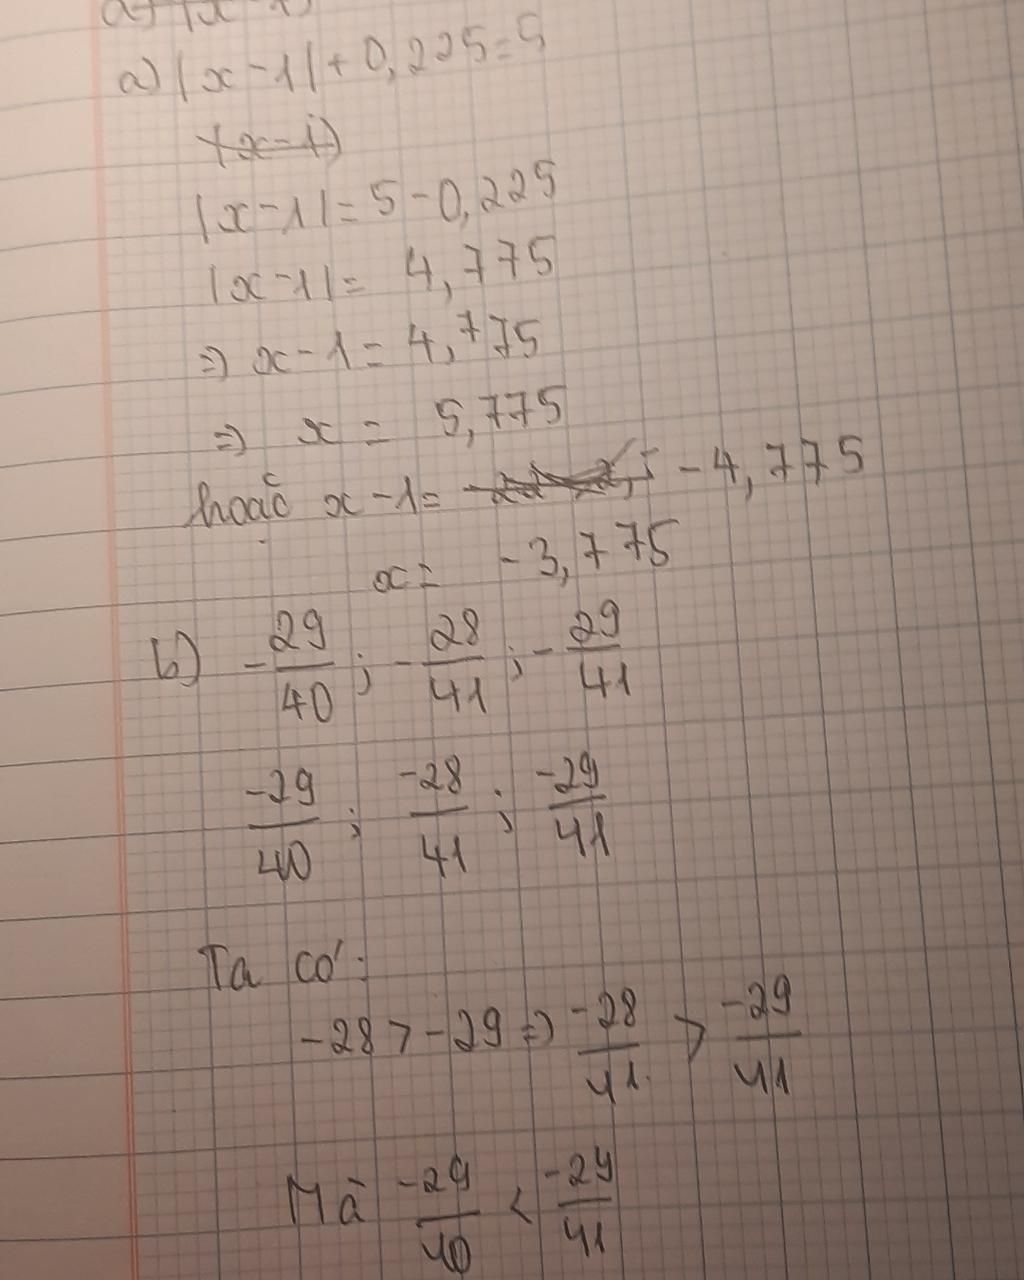 a) |x-1|+0,225=5
(x-1)
|x-1|=5-0,225
|x-1|= 4,775
=) x-1=4,775
=) x = 5,775
hoặc x-1= -4,775
x= -3,775
b) -29/40 ; -28/41 ; -29/41
-29/40 ; -28/41 ; -29/41
Ta có:
-28>-29 =) -28/41 > -29/41
Mà -29/40 < -29/41